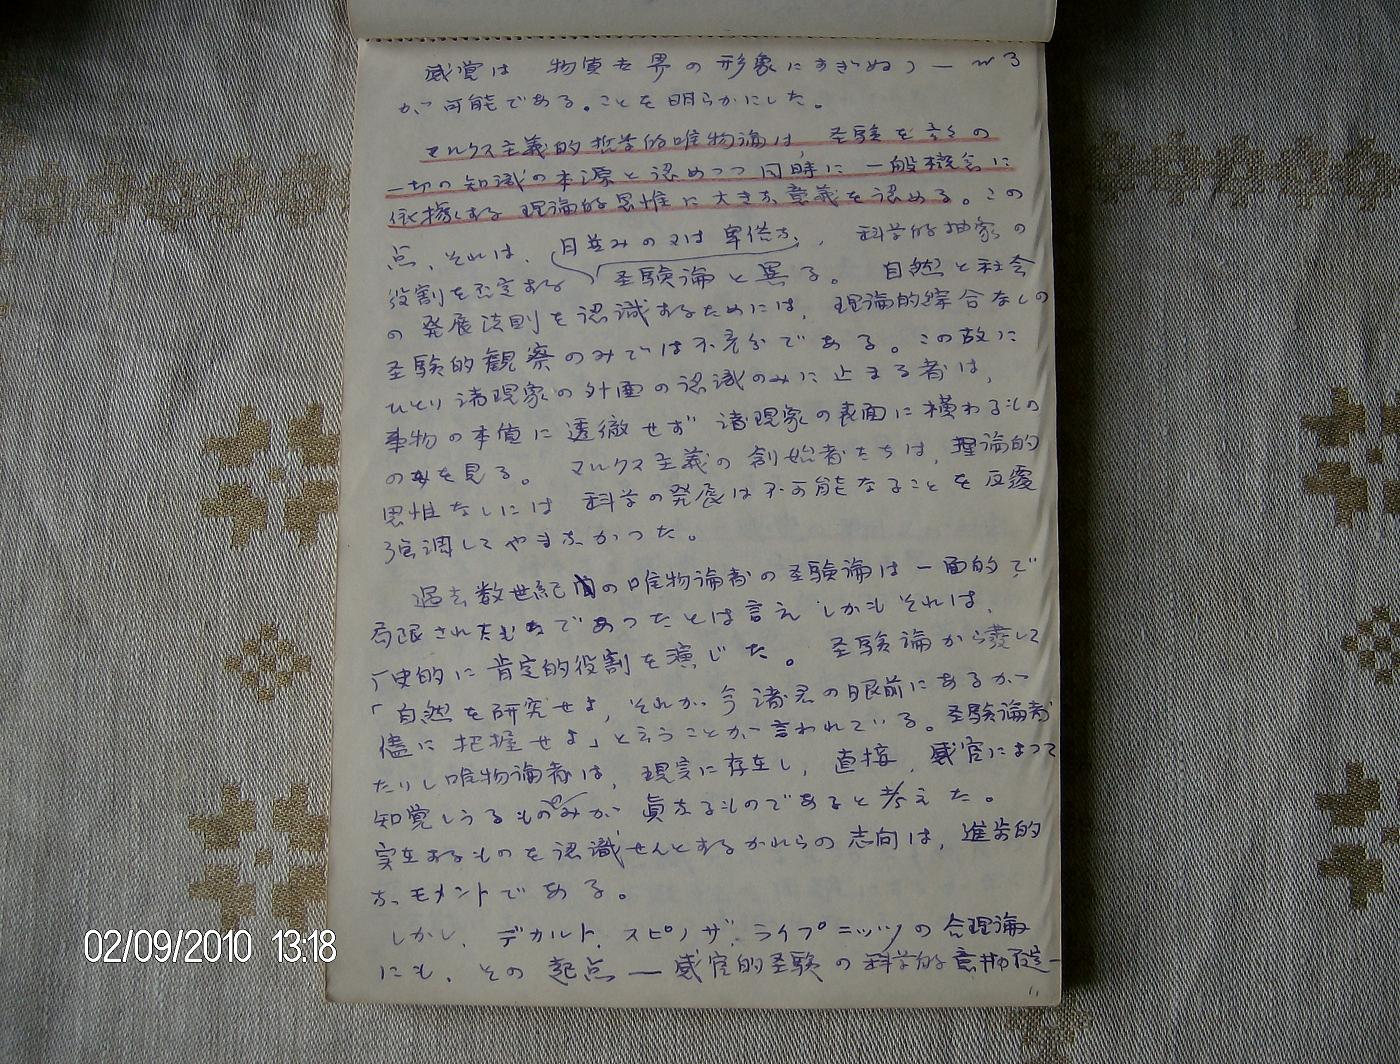 感覚は 物質世界の形象にすぎぬ)—
が可能である。ことを明らかにした。
マルクス主義的哲学的唯物論は、経験を
一切の知識の本源と認めつつ同時に一般概念に
依拠する 理論的思惟に大きな意義を認める。この
点、それは、月並みの又は卑俗な、科学的抽象の
役割を否定する 経験論と異る。 自然と社会
の発展法則を認識するためには、理論的綜合なしの
経験的観察のみでは不充分である。この故に
ひとり諸現象の外面の認識のみに止まる者は、
事物の本質に透徹せず 諸現象の表面に横わるもの
のみを見る。 マルクス主義の創始者たちは、理論的
思惟なしには 科学の発展は不可能なることを反覆
強調してやまなかった。
過去数世紀間の唯物論者の経験論は一面的で
局限されたものであつたとは言え しかもそれは、
歴史的に肯定的役割を演じた。 経験論から発して
「自然を研究せよ、それが今諸君の眼前にあるが
儘に 把握せよ」と云うことが言われている。経験論者
たりし唯物論者は、現実に存在し、直接、感官によつて
知覚しうるもののみが 眞なるものであると考えた。
実在するものを認識せんとするかれらの志向は、進歩的
な モメントである。
しかし、デカルト、スピノザ、ライプニッツの合理論
にも、その 起点—感官的経験の科学的意義の否定—
02/09/2010 13:18